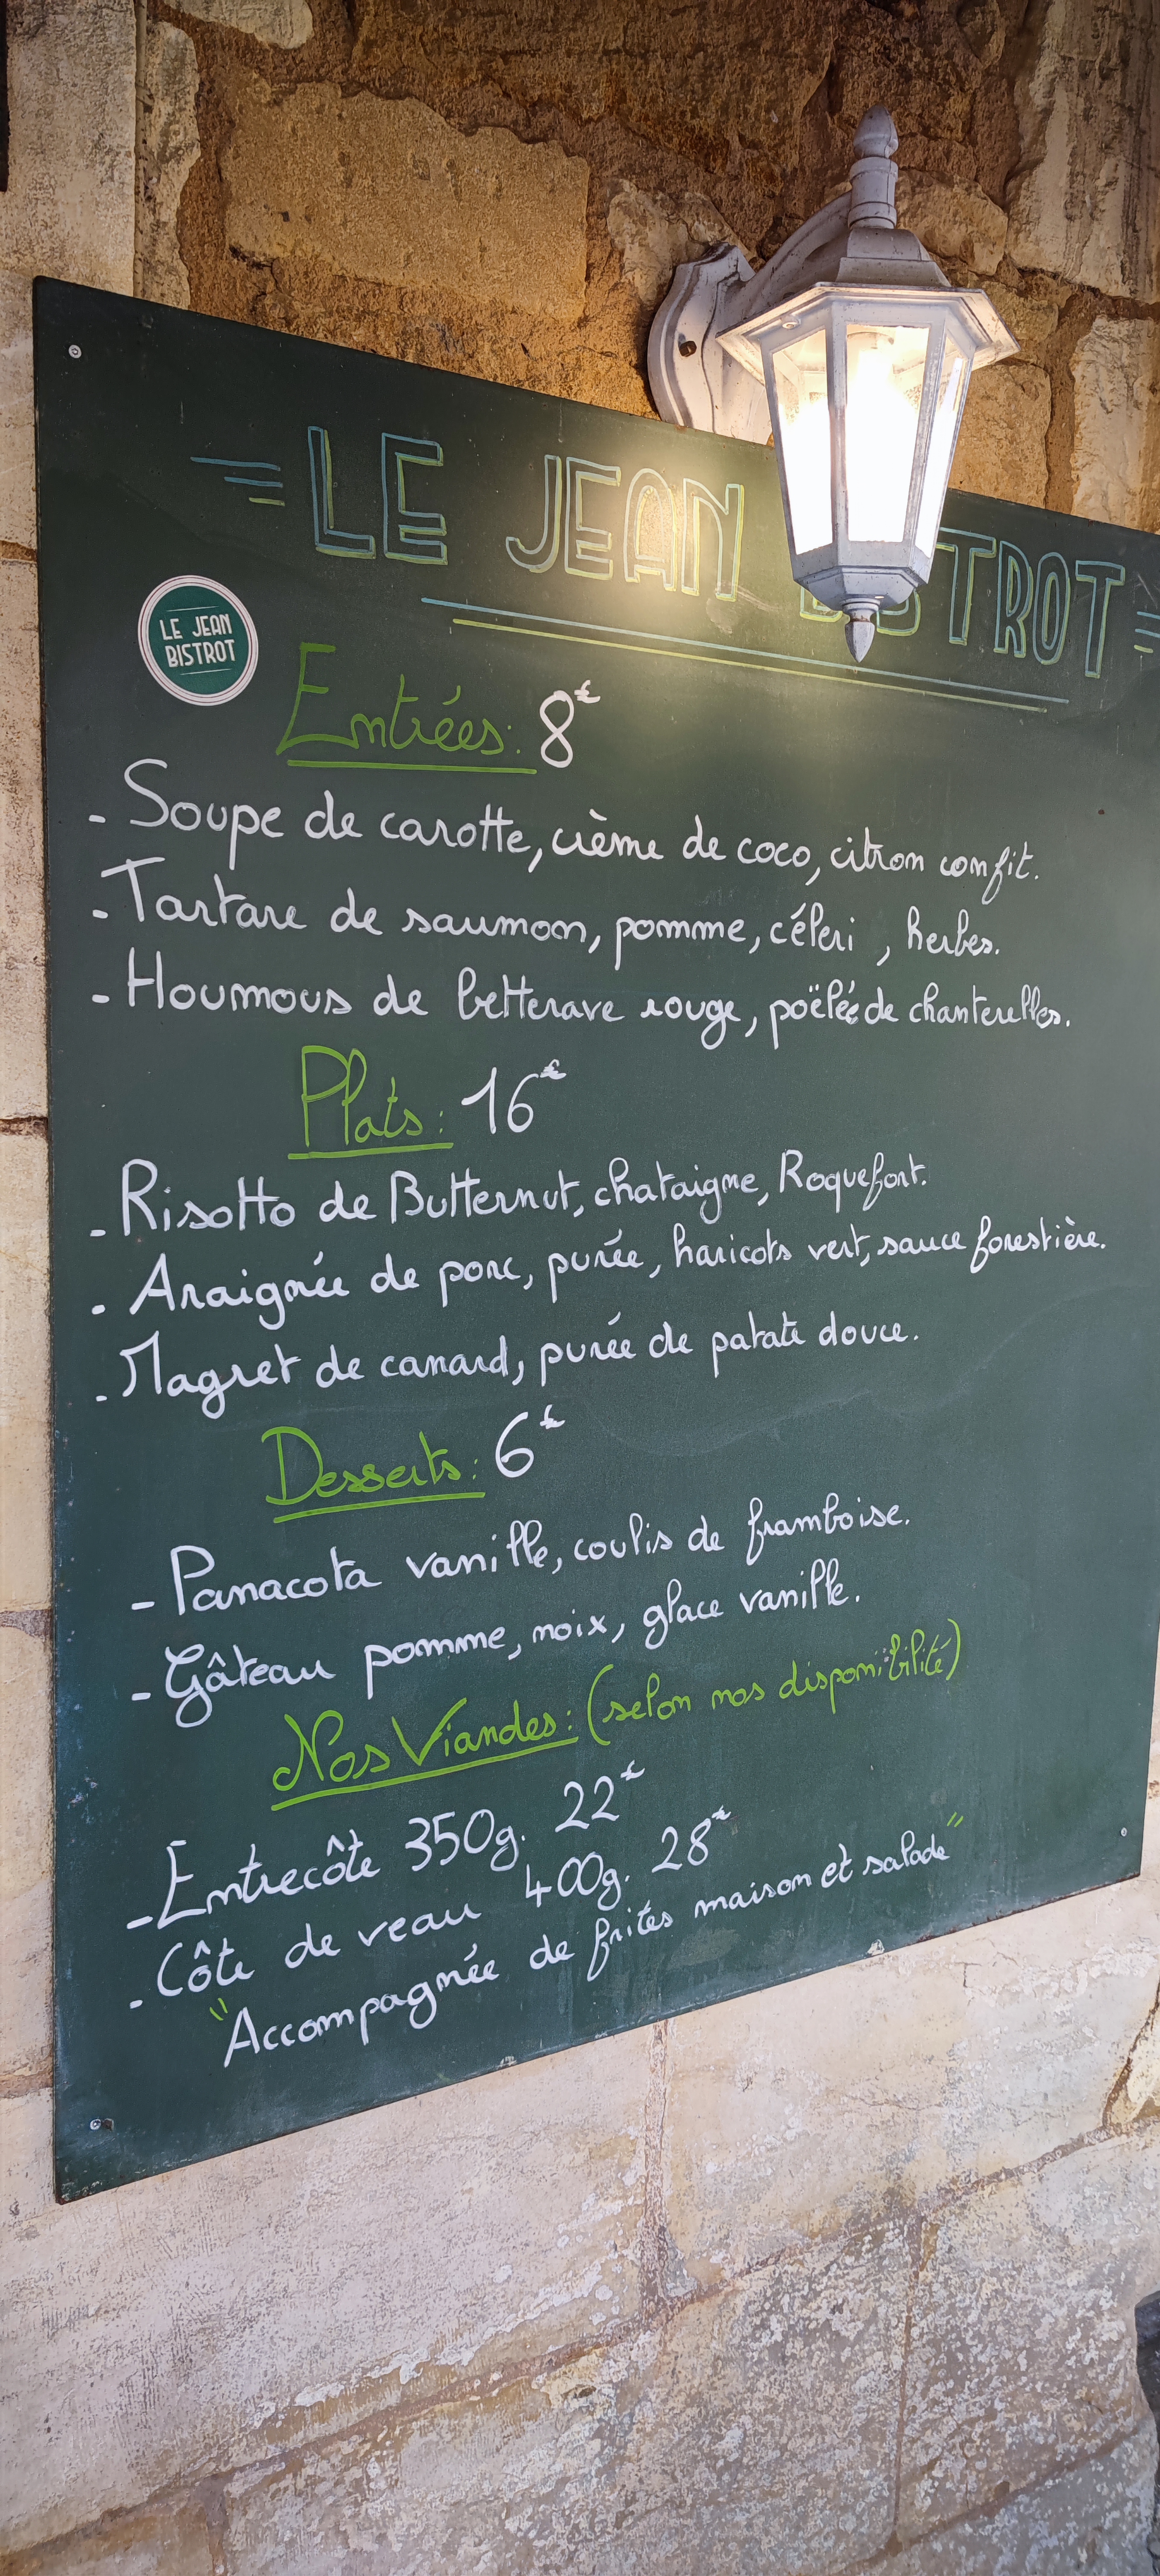 LE JEAN BISTROT
LE JEAN
BISTROT
Entrées: 8€
- Soupe de carotte, crème de coco, citron confit.
- Tartare de saumon, pomme, céleri , herbes.
- Houmous de betterave rouge, poëlée de chanterelles.
Plats: 16€
- Risotto de Butternut, chataigne, Roquefort.
- Araignée de porc, purée, haricots vert, sauce forestière.
- Magret de canard, purée de patate douce.
Desserts: 6€
- Panacota vanille, coulis de framboise.
- Gâteau pomme, noix, glace vanille.
Nos Viandes: (selon nos disponibilité)
- Entrecôte 350g. 22€
- Côte de veau 400g. 28€
"Accompagnée de frites maison et salade"